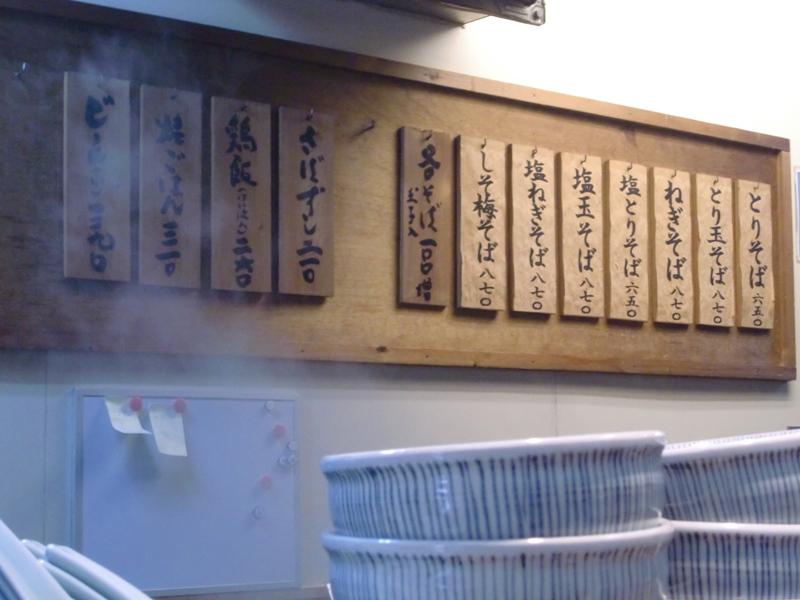 とりそば 六五〇
とり玉そば 八七〇
ねぎそば 八七〇
塩とりそば 六五〇
塩玉そば 八七〇
塩ねぎそば 八七〇
しそ梅そば 八七〇
各そば 一〇〇増
さばずし 二一〇
鶏飯 二六〇
ごはん 三一〇